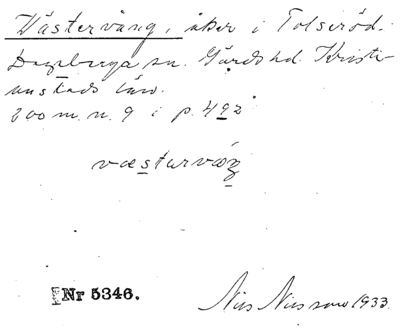 Västervång, åker i Tolseröd.
Degeberga sn. Gärds hd. Kristi-
anstads län.
200 m. n. 9 i p. 492
væstərvæŋ
Nr 5346.
Nils Nilsson 1933.